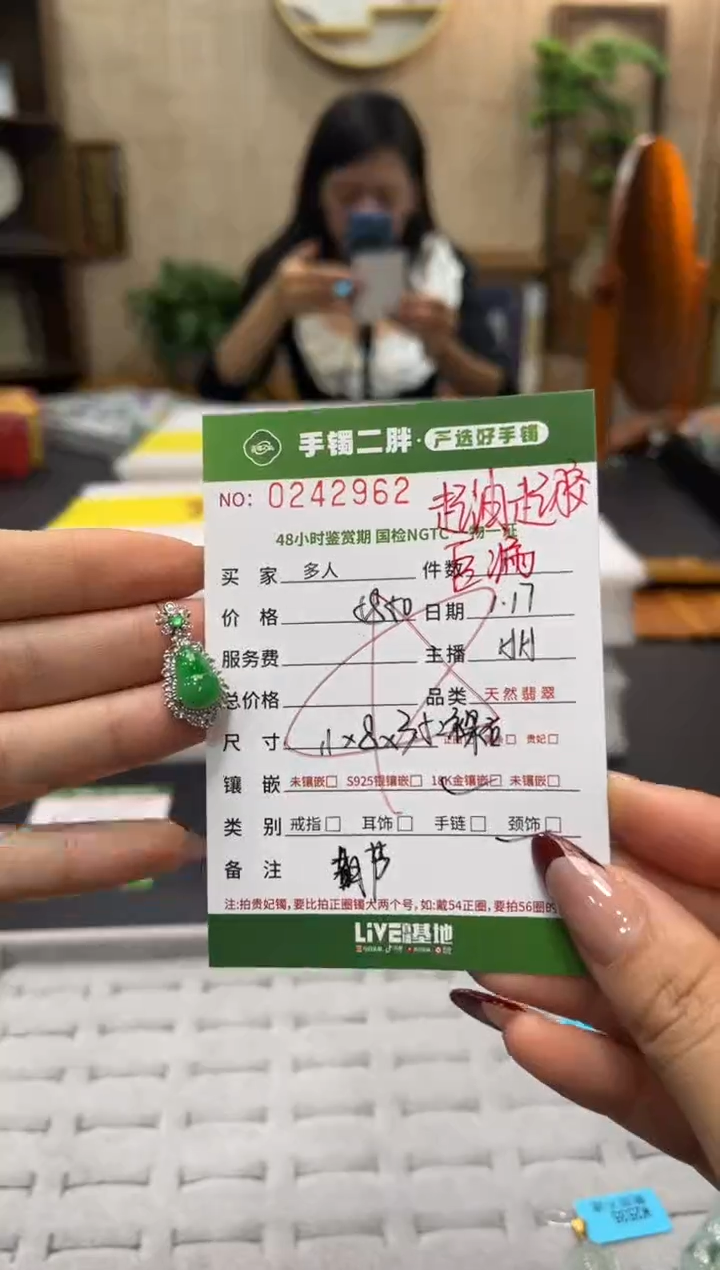 手镯二胖·严选好手镯
NO: 0242962
起油起胶
48小时鉴赏期 国检NGTC 一物一证
买 家 多人 件数
价 格 日期 1.17
服务费 主播
总价格 品类 天然翡翠
尺 寸 11×8×3 裸石 贵妃□
镶 嵌 未镶嵌□ S925银镶嵌□ 18K金镶嵌□ 未镶嵌□
类 别 戒指□ 耳饰□ 手链□ 颈饰□
备 注
注:拍贵妃镯,要比拍正圈镯大两个号,如:戴54正圈,要拍56圈的
LIVE基地